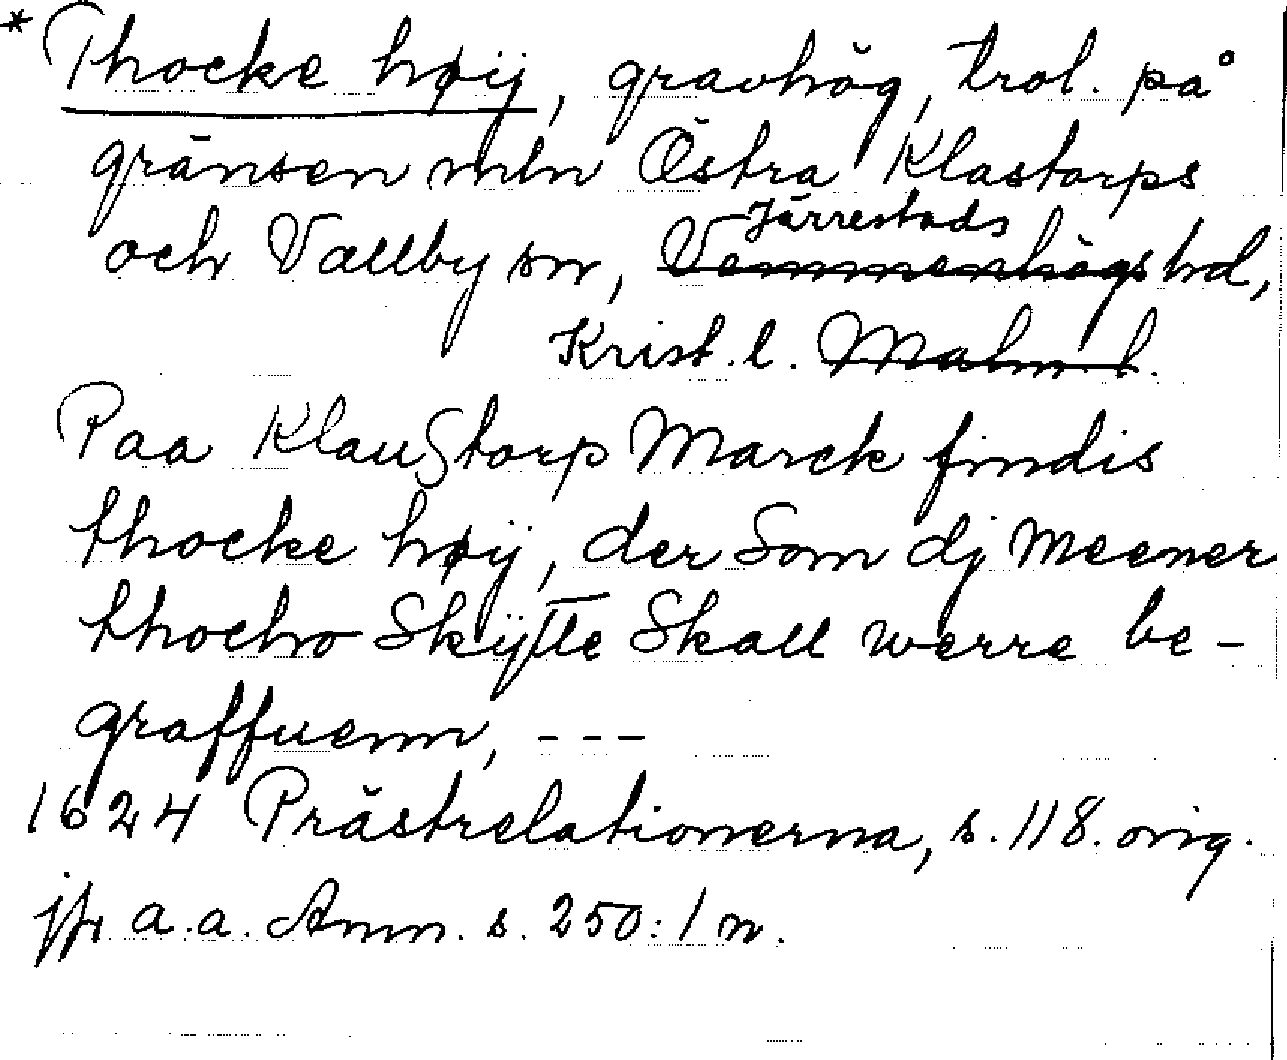 * Thocke høÿ, gravhög, trol. på
gränsen mln Östra Klastorps
och Vallby sn, Järrestads Vemmenhögs hd,
Krist. l. Malm. l.
Paa Klaußtorp Marck findis
thocke høÿ, der Som dj Meener
thocho Skÿtte Skall werre be-
graffuenn, ---
1624 Prästrelationerna, s. 118. orig.
jfr a.a. Anm. s. 250: 1 n.